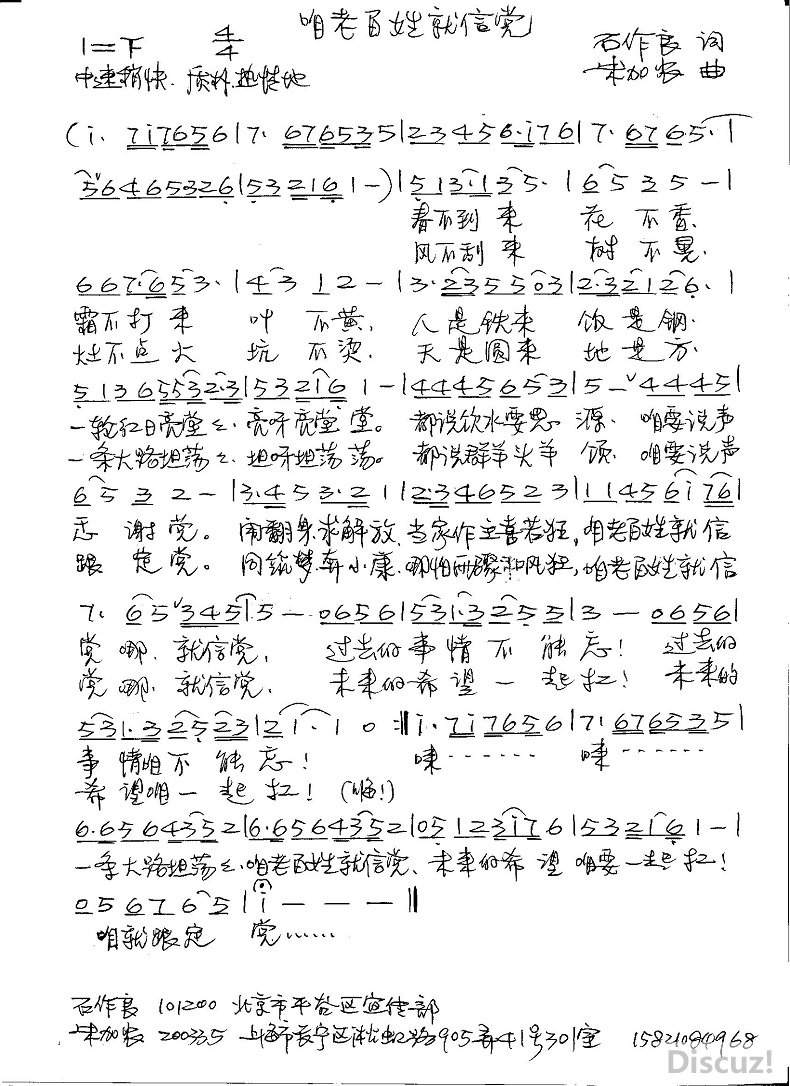 咱老百姓就信党
1=F 4/4 石作良 词
中速稍快、质朴、热情地 宋加农 曲
(i· 7i7656|7· 676535|23456·i76|7· 6765·|
56465326|532161-)|513·135·|6535-|
春不到来 花不香,
风不刮来 树不晃,
667·653·|4312-|3·235503|2·32126·|
霜不打来 叶不黄, 人是铁来 饭是钢.
灶不点火 炕不烫. 天是圆来 地是方.
51365532·3|532161-|4445653|5-4445|
一轮红日亮堂々亮呀亮堂堂。都说饮水要思源 咱要说声
一条大路坦荡々坦呀坦荡荡。都说群羊头羊领 咱要说声
6532-|3·453·21|2·346523|11456i76|
志谢党。闹翻身求解放,当家作主喜若狂,咱老百姓就信
跟定党。同筑梦奔小康,哪怕雨骤和风狂,咱老百姓就信
7·653455-0656|531·32553-0656|
党哪,就信党, 过去的事情不能忘! 过去的
党哪,就信党, 未来的希望一起扛! 未来的
531·32523|21·10:||i·7i7656|7·676535|
事情咱不能忘! 唻…… 唻……
希望咱一起扛! (嗨!)
6·6564352|6·6564352|05123i76|532161-|
一条大路坦荡々,咱老百姓就信党、未来的希望咱要一起扛!
056765|i---||
咱就跟定 党……
石作良 101200 北京市平谷区宣传部
宋加农 200335 上海市长宁区淞虹路905弄41号301室 15821084968
Discuz!